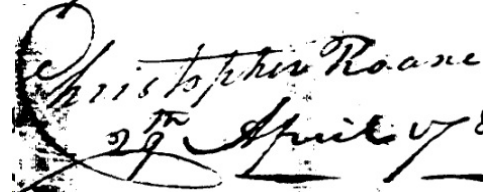 Christopher Roane
29th April 178